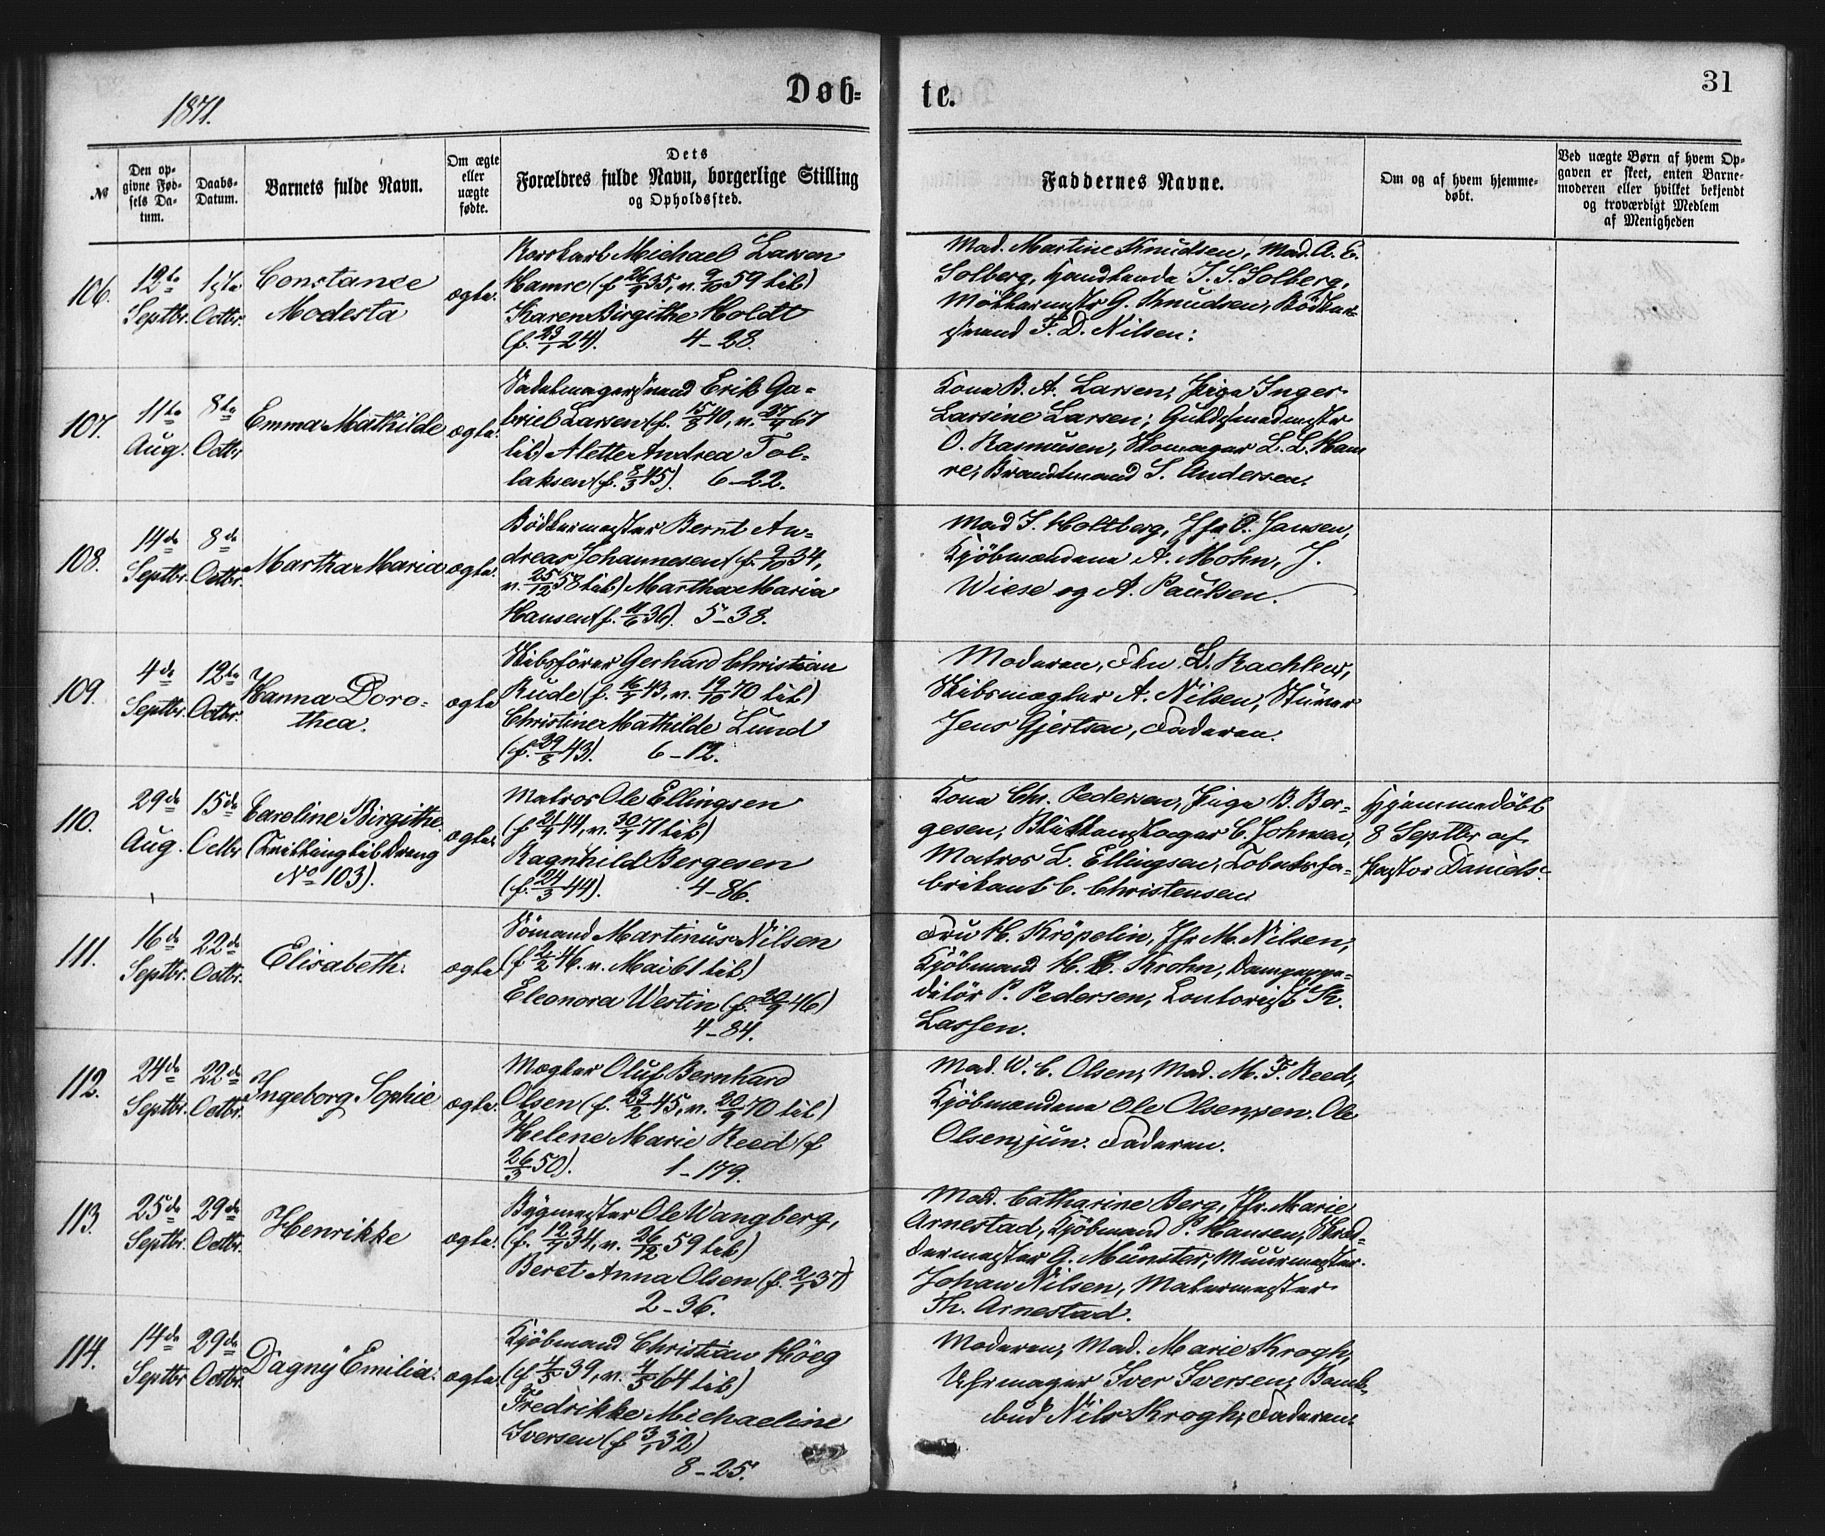 1871.
Døb=
te.
31
№
Den op-
givne Fød-
sels Da-
tum.
Daabs-
Datum.
Barnets fulde Navn.
Om ægte
eller
uægte
fødte.
Dets
Forældres fulde Navn, borgerlige Stilling
og Opholdssted.
Faddernes Navne.
Om og af hvem hjemme-
døbt.
Ved uægte Børn af hvem Op-
gaven er skeet, enten Barne-
moderen eller hvilket bekjendt
og troværdigt Medlem
af Menigheden
106.
12te
Septbr.
1ste
Octbr.
Constance
Modesta
ægte.
Michael Larsen
Hamre (f. 26/9 35, v. 9/10 59 til)
Karen Birgithe Holdt
(f. 23/1 24). 4-28.
Mad. Martine Knudsen, Mad. A. E.
Solberg, Handlende S. S. Solberg,
G. Knudsen, Bödker-
svend F. D. Nilsen:
107.
11te
Aug.
8de
Octbr
Emma Mathilde
ægte.
Sadelmagersvend Erik Ga-
briel Larsen (f. 15/8 40, v. 27/4 67
til) Alette Andrea Tol-
laksen (f. 8/3 45). 6-22.
Kone B. A. Larsen, Pige Inger
Larsine Larsen; Guldsmedmester
O. Rasmusen, Skomager L. L. Ham
re, Brandmand S. Andersen.
108.
14de
Septbr.
8de
Octbr.
Martha Maria
ægte.
Bödkermester Bernt An-
dreas Johannesen (f. 9/10 34,
v. 25/12 58 til) Martha Maria
Hansen (f. 11/6 36). 5-38.
Mad J. Holtberg, Jfr O. Jansen,
Kjöbmændene A. Mohn, J.
Wiese og A. Paulsen.
109.
4de
Septbr.
12te
Octbr.
Hanna Doro-
thea.
ægte
Skibsförer Gerhard Christian
Rude (f. 16/1 43, v. 19/10 70 til)
Christine Mathilde Lund
(f. 29/8 43). 6-12.
Moderen, Fru L. Rachlew,
Skibsmægler A. Nilsen, Stuver
Jens Gjertsen, Faderen.
110.
29de
Aug.
15de
Octbr
Caroline Birgithe.
(Tvilling til Dreng
No 103).
ægte.
Matros Ole Ellingsen
(f. 21/1 44, v. 30/4 71 til)
Ragnhild Bergesen
(f. 24/3 44). 4-86.
Kone Chr. Pedersen, Pige B. Ber-
gesen, Blikkenslager C. Johnsen,
Matros L. Ellingsen, Tobaksfa-
brikant C. Christensen
Hjemmedöbt
8 Septbr af
Pastor Daniels.
111.
16de
Septbr.
22de
Octbr.
Elisabeth.
ægte
Sömand Martinus Nilsen
(f. 2/2 46. v. Mai 61 til)
Eleonora Westin (f. 20/9 46)
4-84.
Fru H. Kröpelin, Jfr M. Nilsen,
Kjöbmand H. C. Krohn, Dampexpe-
ditör P. Pedersen, Contorist K.
Lassen.
112.
24de
Septbr.
22de
Octbr.
Ingeborg Sophie
ægte.
Mægler Oluf Bernhard
Olsen (f. 23/2 45, v. 20/9 70 til)
Helene Marie Reed (f
26/3 50). 1-179.
Mad. W. C. Olsen, Mad. M. F. Reed,
Kjöbmændene Ole Olsen sen. Ole
Olsen jun. Faderen.
113.
25de
Septbr.
29de
Octbr.
Henrikke
ægte.
Bygmester Ole Wangberg,
(f. 12/7 34, v. 26/12 59 til)
Beret Anna Olsen (f. 2/1 37)
2-36.
Mad. Catharine Berg, Jfr. Marie
Arnestad, Kjöbmand P. Hansen, Skræ-
dermester G. Münster, Muurmester
Johan Nilsen, Malermester
Th. Arnestad.
114.
14de
Septbr
29de
Octbr.
Dagny Emilia.
ægte.
Kjöbmand Christian Höeg
(f. 7/5 39, v. 4/5 64 til)
Fredrikke Michaeline
Iversen (f 3/1 32)
8-25.
Moderen, Mad. Marie Krogh,
Uhrmager Iver Iversen, Bank-
bud Nils Krogh, Faderen.